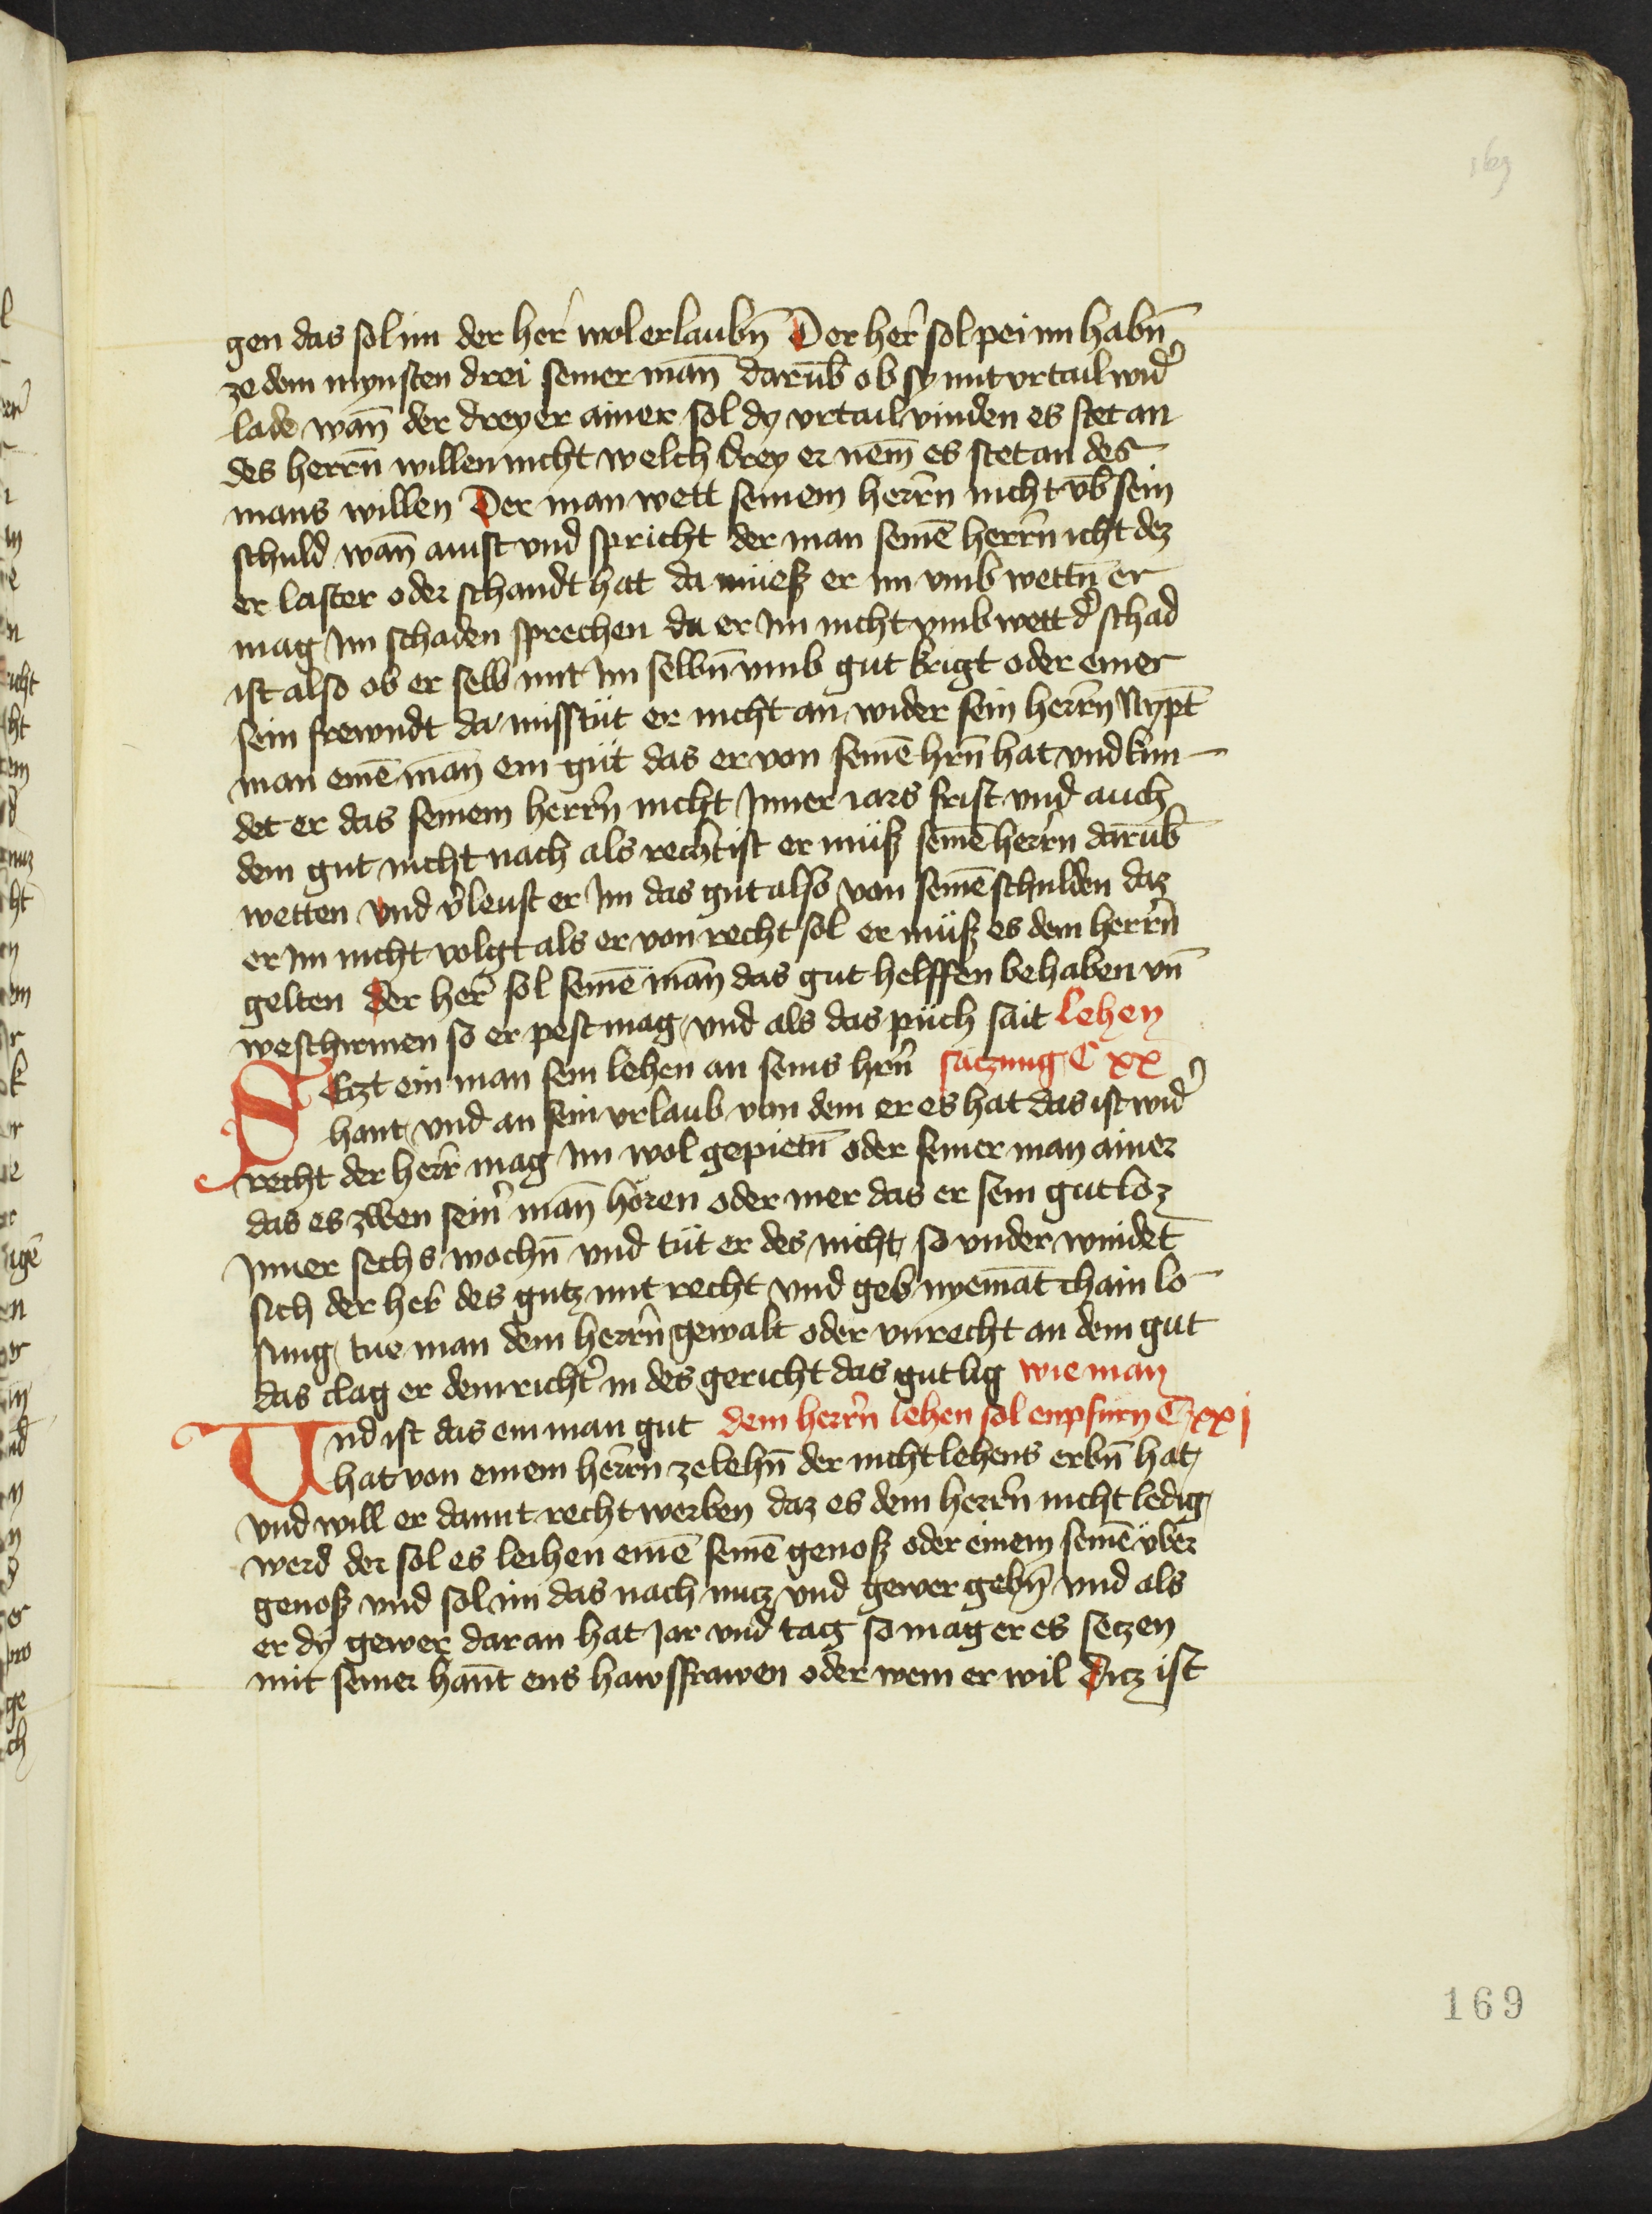 169
gen das sol im der her̄ wol erlaubn̄ Der her̄ sol pei im habn̄
ze dem mynsten drei seiner man̄ darūb ob sy mit vrtail wid̕
lade wan̄ der dreyer ainer sol dy vrtail vinden es stet an
des herrn̄ willen nicht welch drey er nem̄ es stet an des
mans willen Der man wett seinem herrn̄ nicht vb̄ sein
schuld wan̄ ainst vnd spricht der man seinē herrn̄ icht dez
er laster oder schandt hat da müeß er im vmb wettn̄ er
mag Im schaden sprechen da er Im nicht vmb wett d̕ schad
ist also ob er selb mit Im selbn̄ vmb gut krigt oder einer
sein frewndt da misstüt er nicht an wider sein herrn̄ Nypt̄
man einē man̄ ein güt das er von seinē hrn̄ hat vnd kün
det er das seinem herrn̄ nicht Inner iars frist vnd auch
dem gut nicht nach als recht ist er müß seinē herrn̄ darūb
wetten vnd v̕leust er Im das gut also von seinē schulden daz
er Im nicht volgt als er von recht sol er müß es dem herrn̄
gelten der her̄ sol seinē man̄ das gut helffen behaben vn̄
weschirmen so er pest mag vnd als das püch sait lehen
SEtzt ein man sein lehen an seins hrn̄ satzung C xx
hant vnd an sein vrlaub von dem er es hat das ist wid̕
recht der herr̄ mag Im wol gepietn̄ oder seiner man ainer
das es zben sein̕ man̄ hören oder mer das er sein gut löz
Inner sechs wochn̄ vnd tüt er des nicht so vnder windet
sich der her̄ des gutz mit recht vnd geb nyemāt chain lo
sung tue man dem herrn̄ gewalt oder vnrecht an dem gut
das clag er dem richt̕ in des gericht das gut lig wie man
Vnd ist das ein man gut dem herrn̄ lehen sol enpfürn C xxj
hat von einem herrn̄ ze lehn̄ der nicht lehens erbn̄ hat
vnd will er damit recht werben daz es dem herrn̄ nicht ledig
werd der sol es leihen einē seinē genoß oder einem seinē über
genoß vnd sol im das nach nutz vnd gewer gebn̄ vnd als
er dy gewer daran hat Jar vnd tag so mag er es setzen
mit seiner han̄t ens hawsfrawen oder wem er wil Ditz ist
169